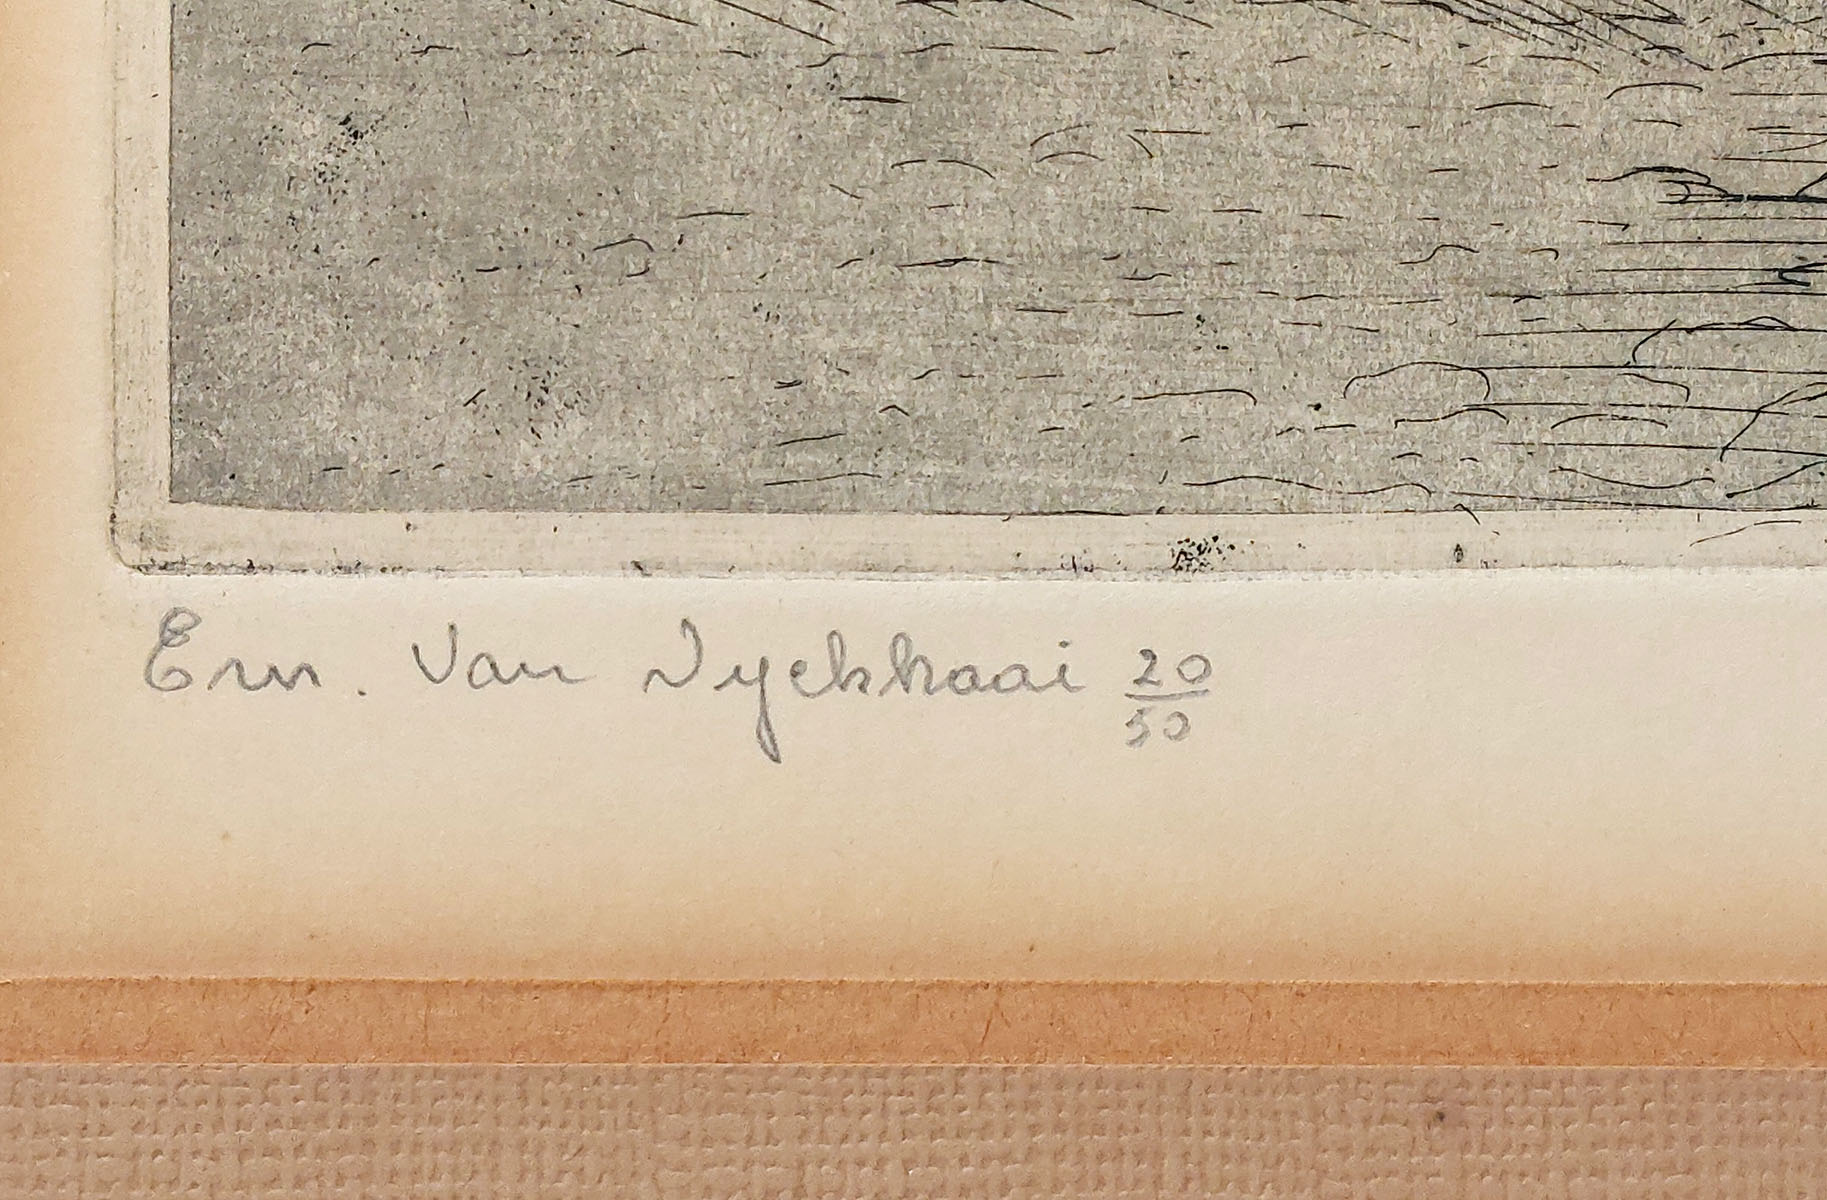 Ern. Van Dyckhaai 20/50